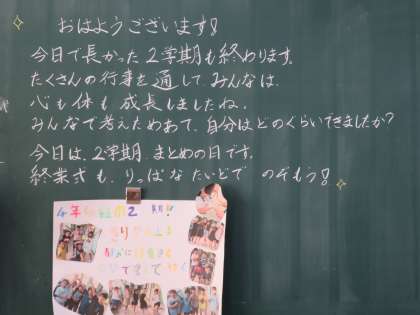 おはようございます!
今日で長かった2学期も終わります。
たくさんの行事を通して、みんなは、
心も体も成長しましたね。
みんなで考えためあて、自分はどのくらいできましたか?
今日は、2学期、まとめの日です。
終業式も、りっぱなたいどで のぞもう!